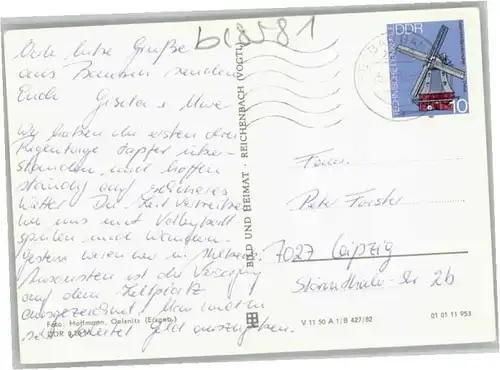 Viele liebe Grüße
aus Bautzen senden
Euch Gisela u. Uwe.
Wir haben die ersten drei
Regentage tapfer über-
standen und hoffen
ständig auf schöneres
Wetter. Die Zeit vertreiben
wir uns mit Volleyball
spielen und Wandern.
Gestern waren wir in
Ansonsten ist die Versorgung
auf dem Zeltplatz
ausgezeichnet. Man
Geld auszugeben.
Foto: Hoffmann, Oelsnitz (Erzgeb.)
b18581
BILD UND HEIMAT · REICHENBACH (VOGTL)
DDR
TECHNISCHE DENKMALE
10
Peter Forster
7027 Leipzig
2b
V 11 50 A 1/B 427/82
01 01 11 953